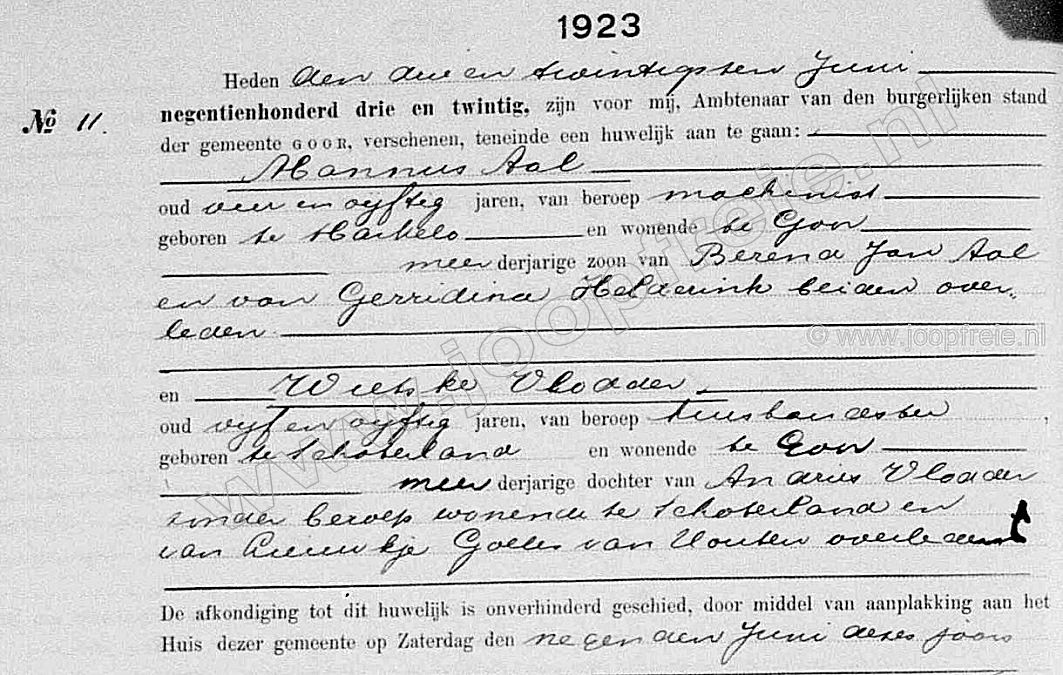 1923
Heden den drie en twintigsten Juni
№ 11.
negentienhonderd drie en twintig, zijn voor mij, Ambtenaar van den burgerlijken stand
der gemeente GOOR, verschenen, teneinde een huwelijk aan te gaan:
Mannus Aal
oud vier en vijftig jaren, van beroep machinist
geboren te Markelo en wonende te Goor
meerderjarige zoon van Berend Jan Aal
en van Gerridina Helderink beiden over-
leden
© www.joopfreie.nl
en Wietske Vlodder
oud vijf en vijftig jaren, van beroep huishoudster,
geboren te Schoterland en wonende te Goor
meerderjarige dochter van Andries Vlodder
zonder beroep wonende te Schoterland en
van Goeles van Houten overleden
De afkondiging tot dit huwelijk is onverhinderd geschied, door middel van aanplakking aan het
Huis dezer gemeente op Zaterdag den negenden Juni dezes jaars
www.joopfreie.nl